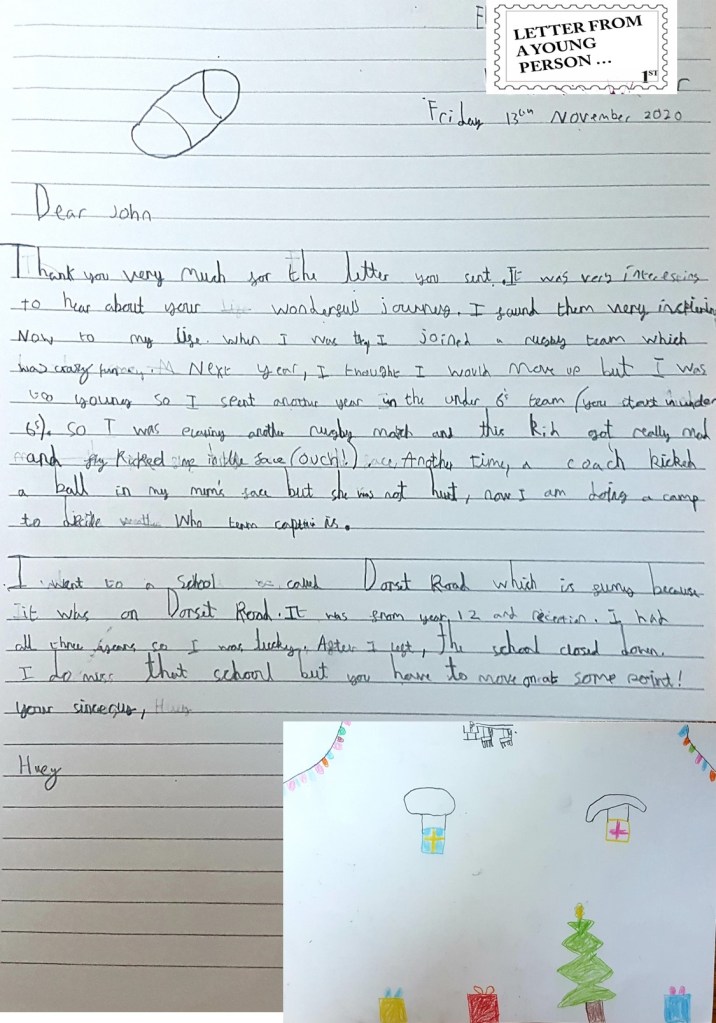 LETTER FROM
A YOUNG
PERSON ...
1ST
Friday 13th November 2020
Dear John
Thank you very much for the letter you sent. It was very
to hear about your wonderfull journey. I found them very
Now to my life. When I was I joined a rugby team which
was crazy Next year, I thought I would move up but I was
too young so I spent another year in the under 6s team (you start in under
6s). So I was another rugby match and this got really mad
and kicked me in the face (OUCH!) Another time, a coach kicked
a ball in my mum's face but she was not hurt, now I am doing a camp
to Who team is.
I went to a school called Dorsit Road which is funny because
it was on Dorsit Road. It was from year 1 2 and I had
all three years so I was lucky. After I left, the school closed down.
I do miss that school but you have to move on at some point!
your
Huey